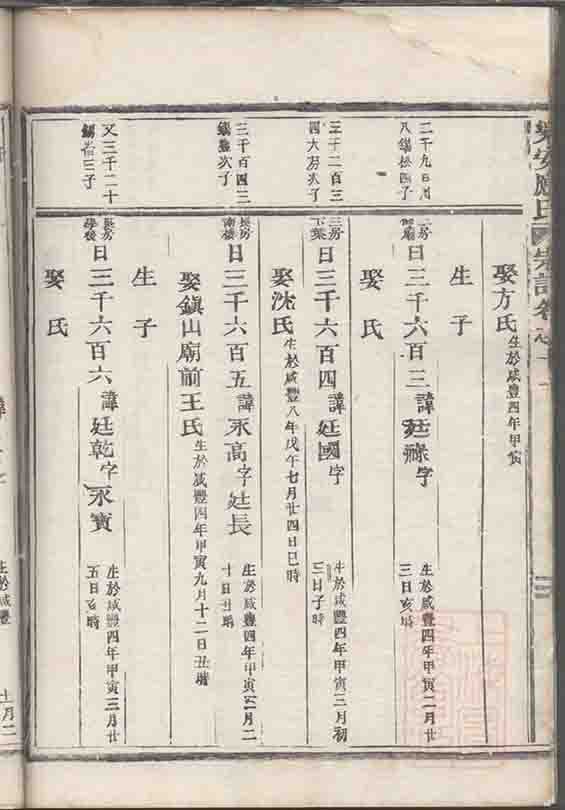 樂安應氏宗譜卷之十一
娶方氏生於咸豐四年甲寅
生子
二千九百
八錫松四子
二房
日三千六百三諱廷祿字
生於咸豐四年甲寅二月廿
三日亥時
娶氏
三千二百三
四大芳次子
三房
下葉
日三千六百四諱廷國字
生於咸豐四年甲寅三月初
三日子時
娶沈氏生於咸豐八年戊午七月廿四日巳時
三千百四三
錫盤次子
長房
南樓
日三千六百五諱永高字廷長
生於咸豐四年甲寅 月二
十日丑時
娶鎮山廟前王氏生於咸豐四年甲寅九月十二日丑時
生子
又三千二十
三子
長房
學後
日三千六百六諱廷乾字永寶
生於咸豐四年甲寅三月廿
五日亥時
娶氏
生於咸豐
月二